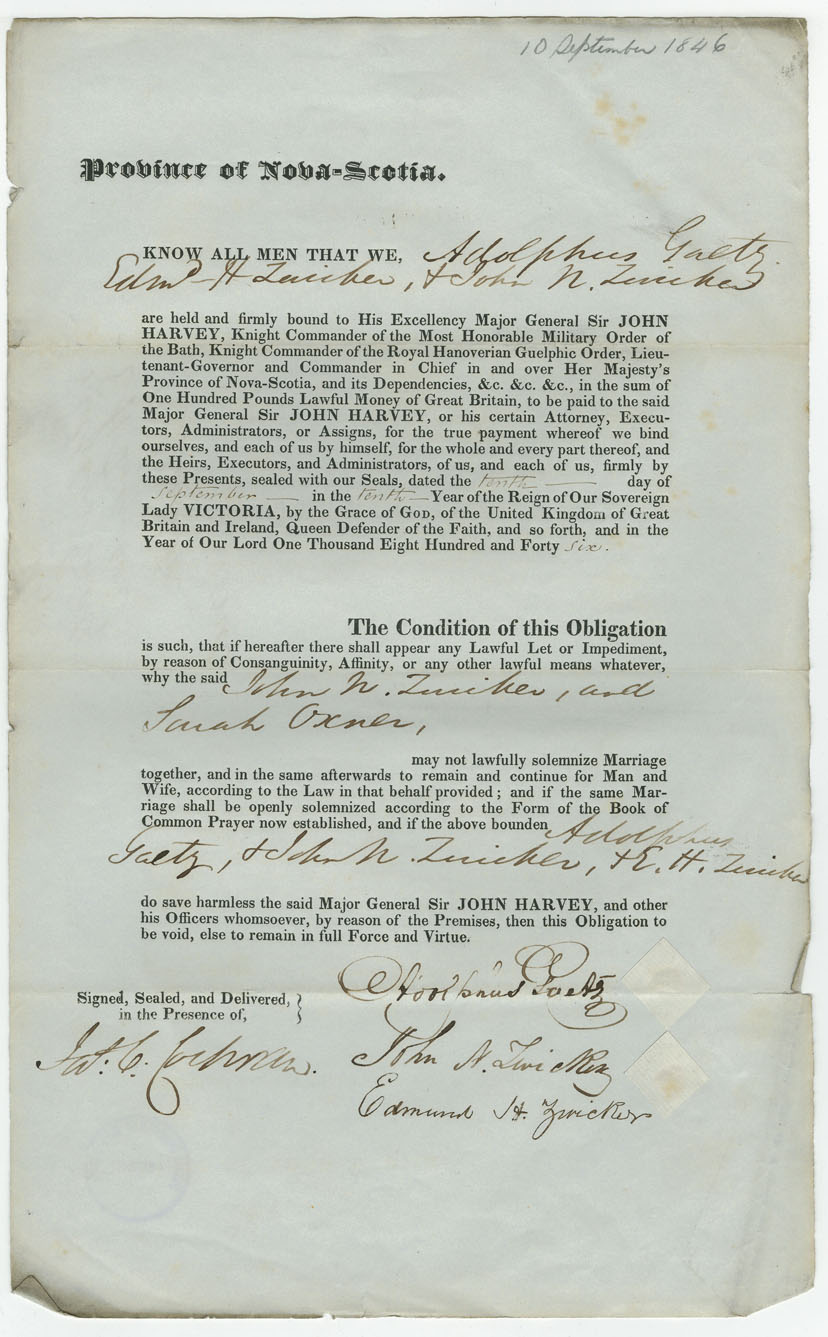 10 September 1846
Province of Nova-Scotia.
KNOW ALL MEN THAT WE, Adolphus Gaetz
Edmd H Zwicker, & John N. Zwicker
are held and firmly bound to His Excellency Major General Sir JOHN
HARVEY, Knight Commander of the Most Honorable Military Order of
the Bath, Knight Commander of the Royal Hanoverian Guelphic Order, Lieu-
tenant-Governor and Commander in Chief in and over Her Majesty's
Province of Nova-Scotia, and its Dependencies, &c. &c. &c., in the sum of
One Hundred Pounds Lawful Money of Great Britain, to be paid to the said
Major General Sir JOHN HARVEY, or his certain Attorney, Execu-
tors, Administrators, or Assigns, for the true payment whereof we bind
ourselves, and each of us by himself, for the whole and every part thereof, and
the Heirs, Executors, and Administrators, of us, and each of us, firmly by
these Presents, sealed with our Seals, dated the tenth — day of
September — in the tenth — Year of the Reign of Our Sovereign
Lady VICTORIA, by the Grace of GOD, of the United Kingdom of Great
Britain and Ireland, Queen Defender of the Faith, and so forth, and in the
Year of Our Lord One Thousand Eight Hundred and Forty six.
The Condition of this Obligation
is such, that if hereafter there shall appear any Lawful Let or Impediment,
by reason of Consanguinity, Affinity, or any other lawful means whatever,
why the said John N. Zwicker, and
Sarah Oxner,
may not lawfully solemnize Marriage
together, and in the same afterwards to remain and continue for Man and
Wife, according to the Law in that behalf provided; and if the same Mar-
riage shall be openly solemnized according to the Form of the Book of
Common Prayer now established, and if the above bounden Adolphus
Gaetz, & John N. Zwicker, & E. H. Zwicker
do save harmless the said Major General Sir JOHN HARVEY, and other
his Officers whomsoever, by reason of the Premises, then this Obligation to
be void, else to remain in full Force and Virtue.
Adolphus Gaetz
Signed, Sealed, and Delivered,
in the Presence of,
Jas. C. Cochran. John N. Zwicker
Edmund H. Zwicker